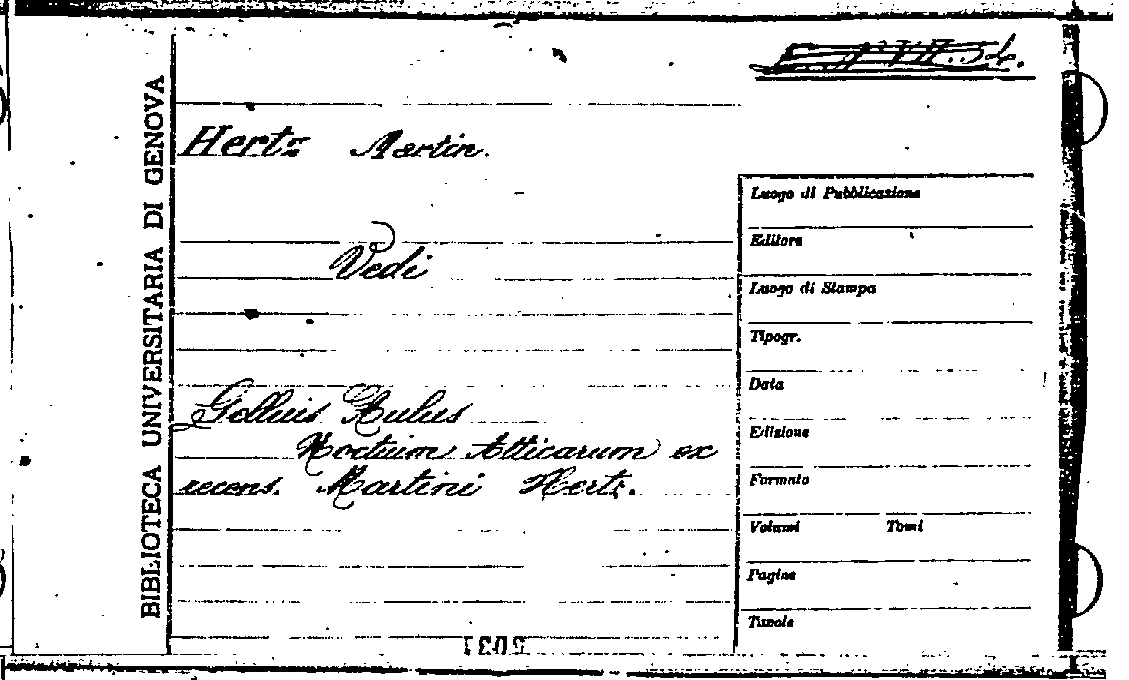 BIBLIOTECA UNIVERSITARIA DI GENOVA
Hertz Martin.
Vedi
Gellius Aulus
Noctium Atticarum ex
recens. Martini Hertz.
Luogo di Pubblicazione
Editore
Luogo di Stampa
Tipogr.
Data
Edizione
Formato
Volumi Tomi
Pagine
Tavole